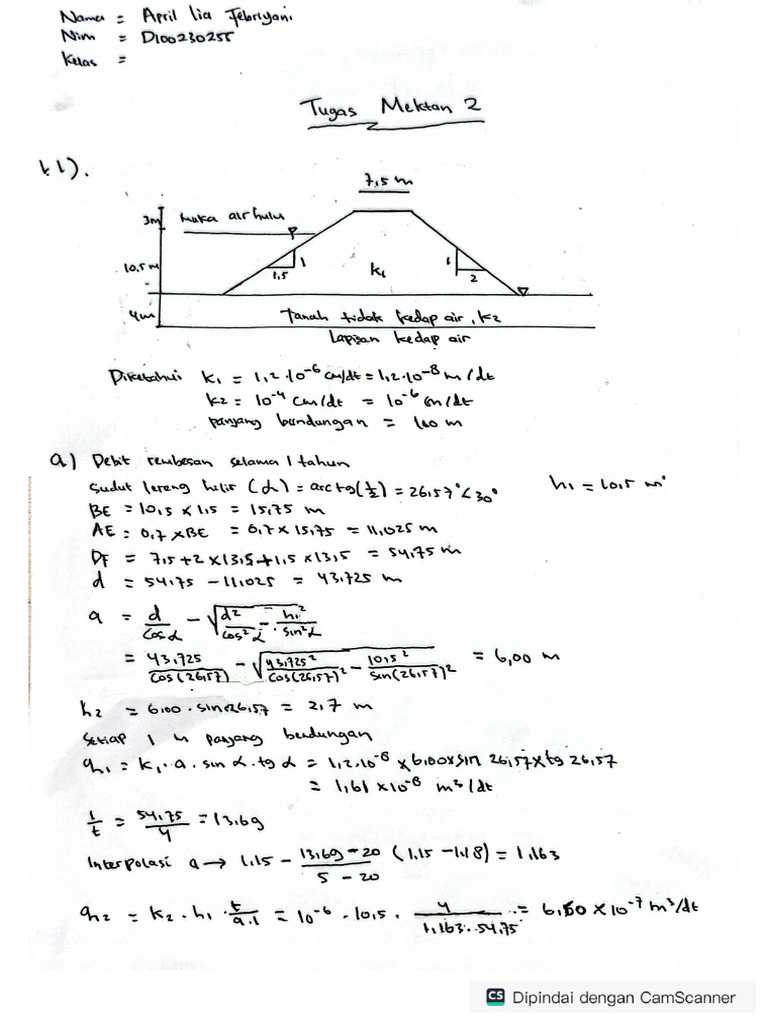 Nama = April lia Febriyani
Nim = D100230255
Kelas =
Tugas Mektan 2
1.1).
7,5 m
3m
muka air hulu
10.5 m
1
1,5
k₁
1
2
4m
Tanah tidak kedap air, k2
Lapisan kedap air
Diketahui k₁ = 1,2·10⁻⁶ cm/dt = 1,2·10⁻⁸ m/dt
k2 = 10⁻⁴ cm/dt = 10⁻⁶ m/dt
panjang bendungan = 100 m
a) Debit rembesan selama 1 tahun
Sudut lereng hilir (α) = arc tg(½) = 26,57° < 30°
h₁ = 10,5 m
BE = 10,5 x 1,5 = 15,75 m
AE = 0,7 x BE = 0,7 x 15,75 = 11,025 m
DF = 7,5 + 2 x 13,5 + 1,5 x 13,5 = 54,75 m
d = 54,75 - 11,025 = 43,725 m
a = d/cos α - √(d²/cos² α - h₁²/sin² α)
= 43,725/cos(26,57) - √(43,725²/cos(26,57)² - 10,5²/sin(26,57)²) = 6,00 m
h2 = 6,00 · sin 26,57 = 2,7 m
Setiap 1 m panjang bendungan
q₁ = k₁ · a · sin α · tg α = 1,2·10⁻⁸ x 6,00 x sin 26,57 x tg 26,57
= 1,61 x 10⁻⁸ m³/dt
l/t = 54,75/4 = 13,69
Interpolasi a → 1,15 - 13,69 - 20/5 - 20 (1,15 - 1,18) = 1,163
q₂ = k₂ · h₁ · t/a.l = 10⁻⁶ · 10,5 · 4/1,163 · 54,75 = 6,60 x 10⁻⁷ m³/dt
CS Dipindai dengan CamScanner